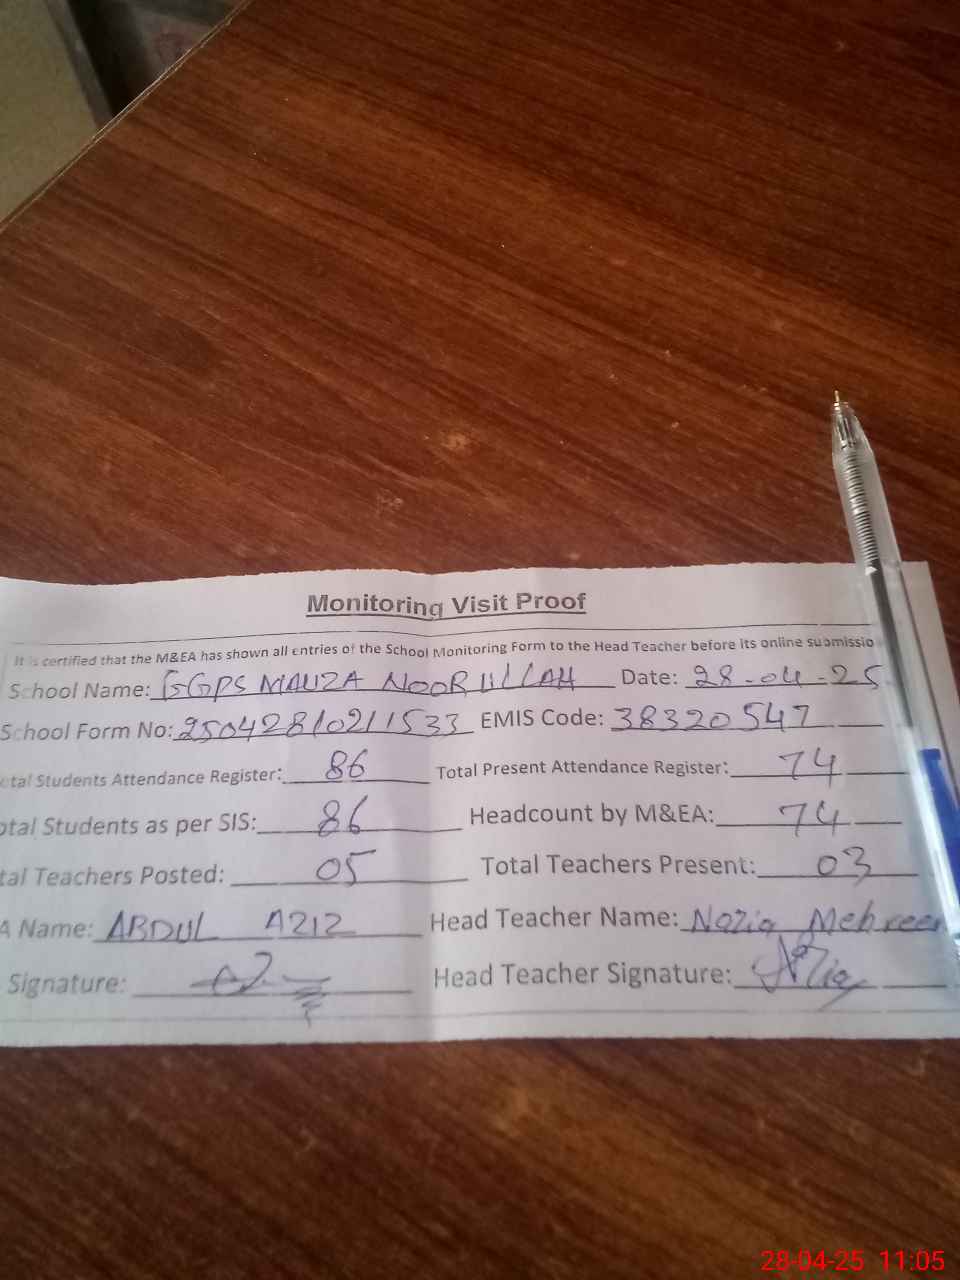 Monitoring Visit Proof
It is certified that the M&EA has shown all entries of the School Monitoring Form to the Head Teacher before its online submissio
School Name: GGPS MAUZA NOOR ULLAH Date: 28-04-25
School Form No: 25042810211533 EMIS Code: 38320547
otal Students Attendance Register: 86 Total Present Attendance Register: 74
otal Students as per SIS: 86 Headcount by M&EA: 74
tal Teachers Posted: 05 Total Teachers Present: 03
A Name: ABDUL AZIZ Head Teacher Name: Nazia Mehreen
Signature: Head Teacher Signature: Nazia
28-04-25 11:05